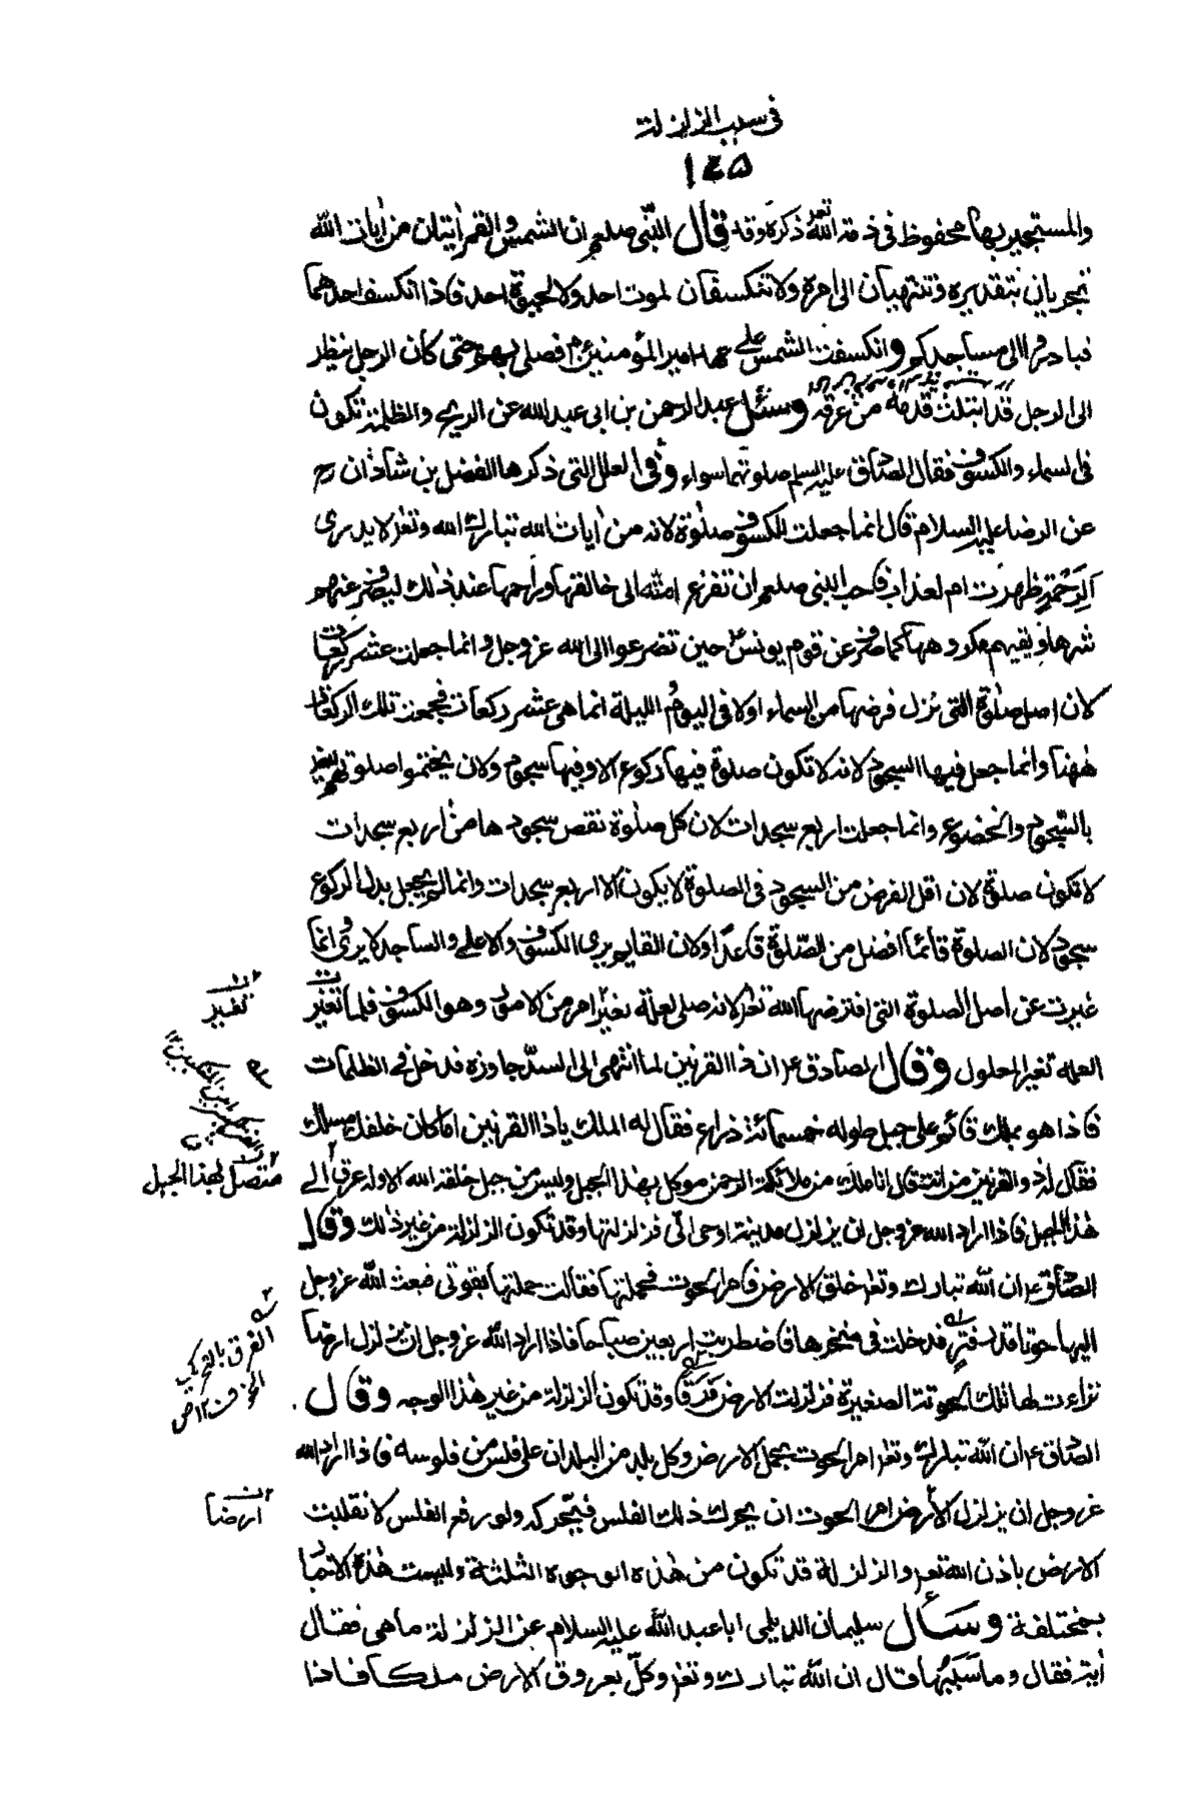 في سبب الزلزلة
١٤٥
والمستجير بها محفوظ في ذمة الله تعر ذكره وقال النبي صلعم ان الشمس والقمر ايتان من ايات الله
تجريان بتقديره وتنتهيان الى امره ولا تنكسفان لموت احد ولا لحيوة احد فاذا انكسف احدهما
فبادروا الى مساجدكم وانكسفت الشمس على عهد امير المؤمنين ع فصلى بهم حتى كان الرجل ينظر
الى الرجل قد ابتلت قدمه من عرقه وسئل عبد الرحمن بن ابي عبد الله عن الريح والظلمة تكون
في السماء والكسوف فقال الصادق عليه السلم صلوتهما سواء وفي العلل التي ذكرها الفضل بن شاذان رح
عن الرضا عليه السلام قال انما جعلت للكسوف صلوة لانه من ايات الله تبارك الله وتعر لا يدرى
الرحمة ظهرت ام لعذاب فاحب النبي صلعم ان تفزع امته الى خالقها وراحمها عند ذلك ليصرف عنهم
شرها ويقيهم مكروهها كما صرف عن قوم يونس ع حين تضرعوا الى الله عز وجل وانما جعلت عشر ركعات
لان اصل صلوة التي نزل فرضها من السماء اولا في اليوم والليلة انما هي عشر ركعات فجمعت تلك الركعات
ههنا وانما جعل فيها السجود لانه لا تكون صلوة فيها ركوع الا وفيها سجود ولان يختموا صلوتهم
بالسجود والخضوع وانما جعلت اربع سجدات لان كل صلوة نقص سجودها من اربع سجدات
لا تكون صلوة لان اقل الفرض من السجود في الصلوة لا يكون الا اربع سجدات وانما لم يجعل بدل الركوع
سجود لان الصلوة قائما افضل من الصلوة قاعدا ولان القايم يرى الكسوف والاعلى والساجد لا يرى وانما
غيرت عن اصل الصلوة التي افترضها الله تعر لانه صلى لعلة تغير امر من الامور وهو الكسوف فلما تغيرت
العلة تغير المعلول وقال الصادق ع ان ذا القرنين لما انتهى الى السد جاوزه فدخل في الظلمات
فاذا هو بملك قائم على جبل طوله خمسمائة ذراع فقال له الملك يا ذا القرنين اما كان خلفك مسلك
فقال له ذو القرنين من انت قال انا ملك من ملائكة الرحمن موكل بهذا الجبل وليس من جبل خلقه الله الا وله عرق الى
هذا الجبل فاذا اراد الله عز وجل ان يزلزل مدينة اوحى الي فزلزلتها وقد تكون الزلزلة من غير ذلك وقال
الصادق ع ان الله تبارك وتعر خلق الارض فامر الحوت فحملتها فقالت حملتها بقوتي فبعث الله عز وجل
اليها حوتا قدر فتر فدخلت في منخرها فاضطربت اربعين صباحا فاذا اراد الله عز وجل ان يزلزل ارضا
تراءت لها تلك الحوتة الصغيرة فزلزلت الارض فرقا وقد تكون الزلزلة من غير هذا الوجه وقال
الصادق ع ان الله تبارك وتعر امر الحوت بحمل الارض وكل بلد من البلدان على فلس من فلوسه فاذا اراد الله
عز وجل ان يزلزل الارض امر الحوت ان يحرك ذلك الفلس فيحركه ولو رفع الفلس لانقلبت
الارض باذن الله تعر والزلزلة قد تكون من هذه الوجوه الثلثة وليست هذه الاخبار
بمختلفة وسأل سليمان الديلمي ابا عبد الله عليه السلام عن الزلزلة ما هي فقال
اية فقال وما سببها قال ان الله تبارك وتعر وكل بعروق الارض ملكا فاذا
تغير
متصل لهذا الجبل
الفرق بالتحريك
الخوف ١٢ ص
ارضا